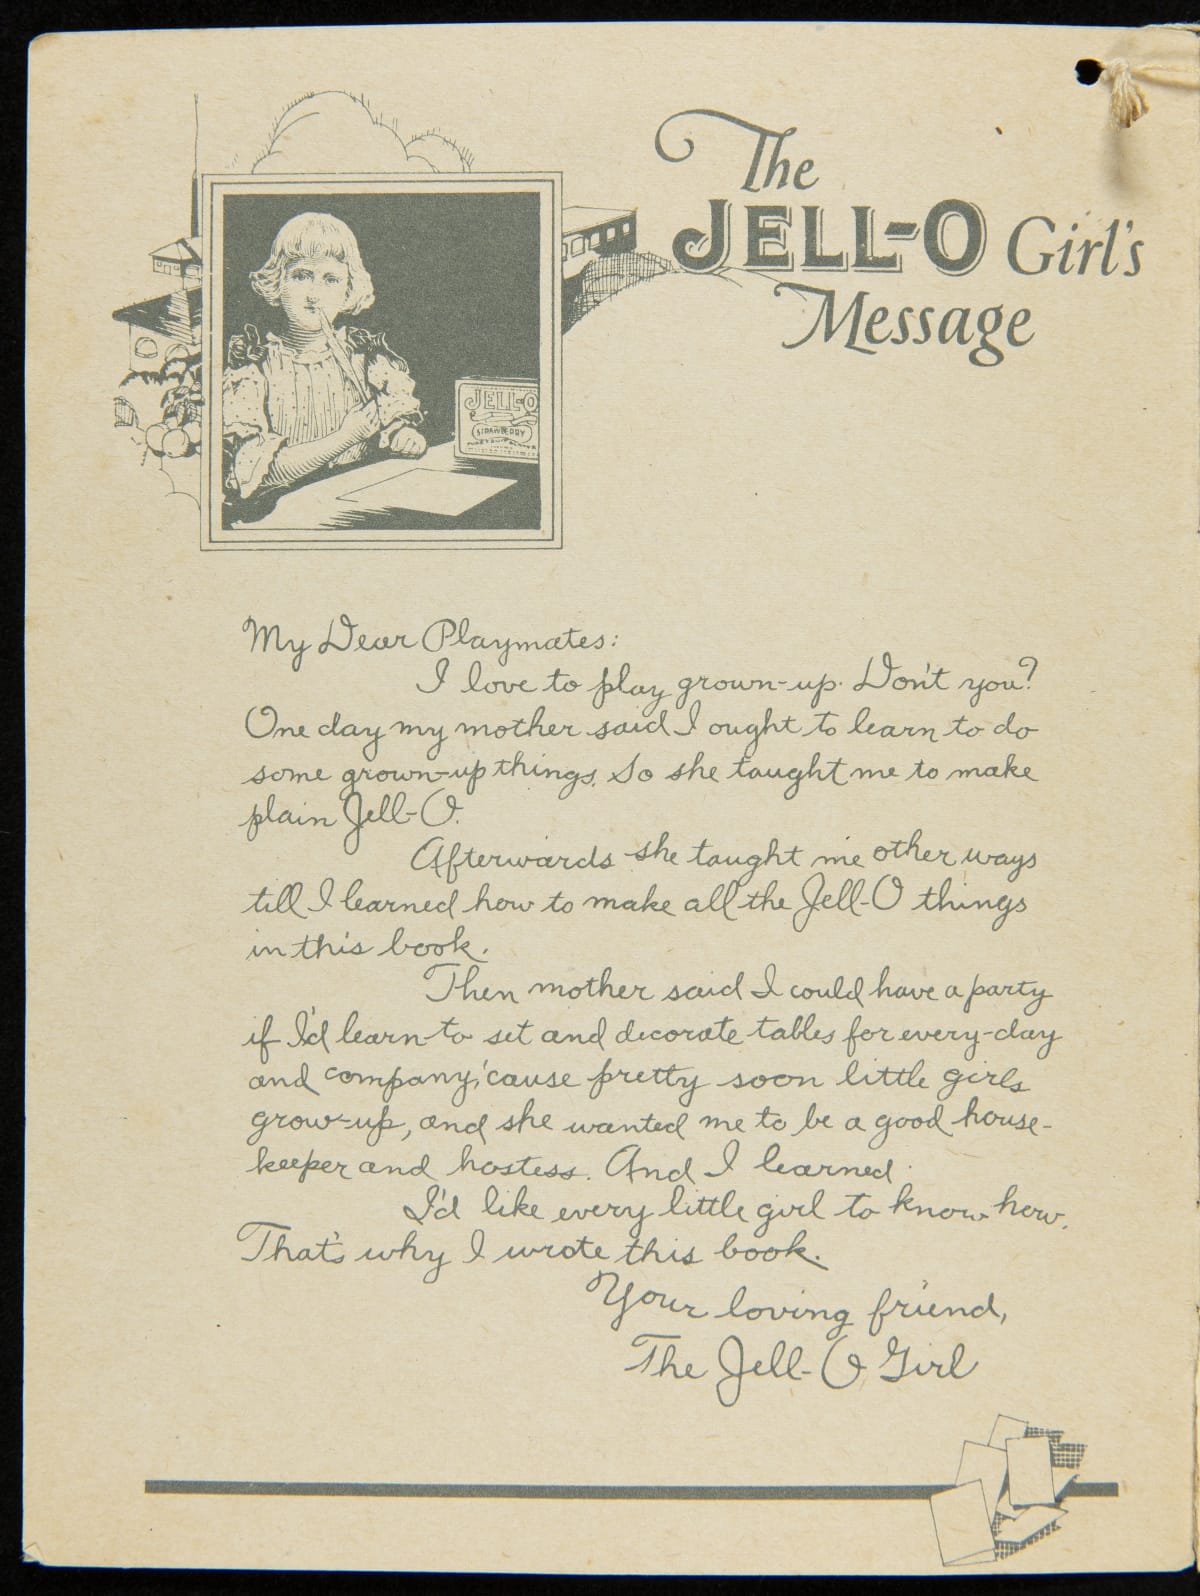 The
JELL-O Girl's
Message
JELL-O
STRAWBERRY
My Dear Playmates:
I love to play grown-up. Don't you?
One day my mother said I ought to learn to do
some grown-up things. So she taught me to make
plain Jell-O.
Afterwards she taught me other ways
till I learned how to make all the Jell-O things
in this book.
Then mother said I could have a party
if I'd learn to set and decorate tables for every-day
and company, 'cause pretty soon little girls
grow-up, and she wanted me to be a good house-
keeper and hostess. And I learned.
I'd like every little girl to know how.
That's why I wrote this book.
Your loving friend,
The Jell-O Girl